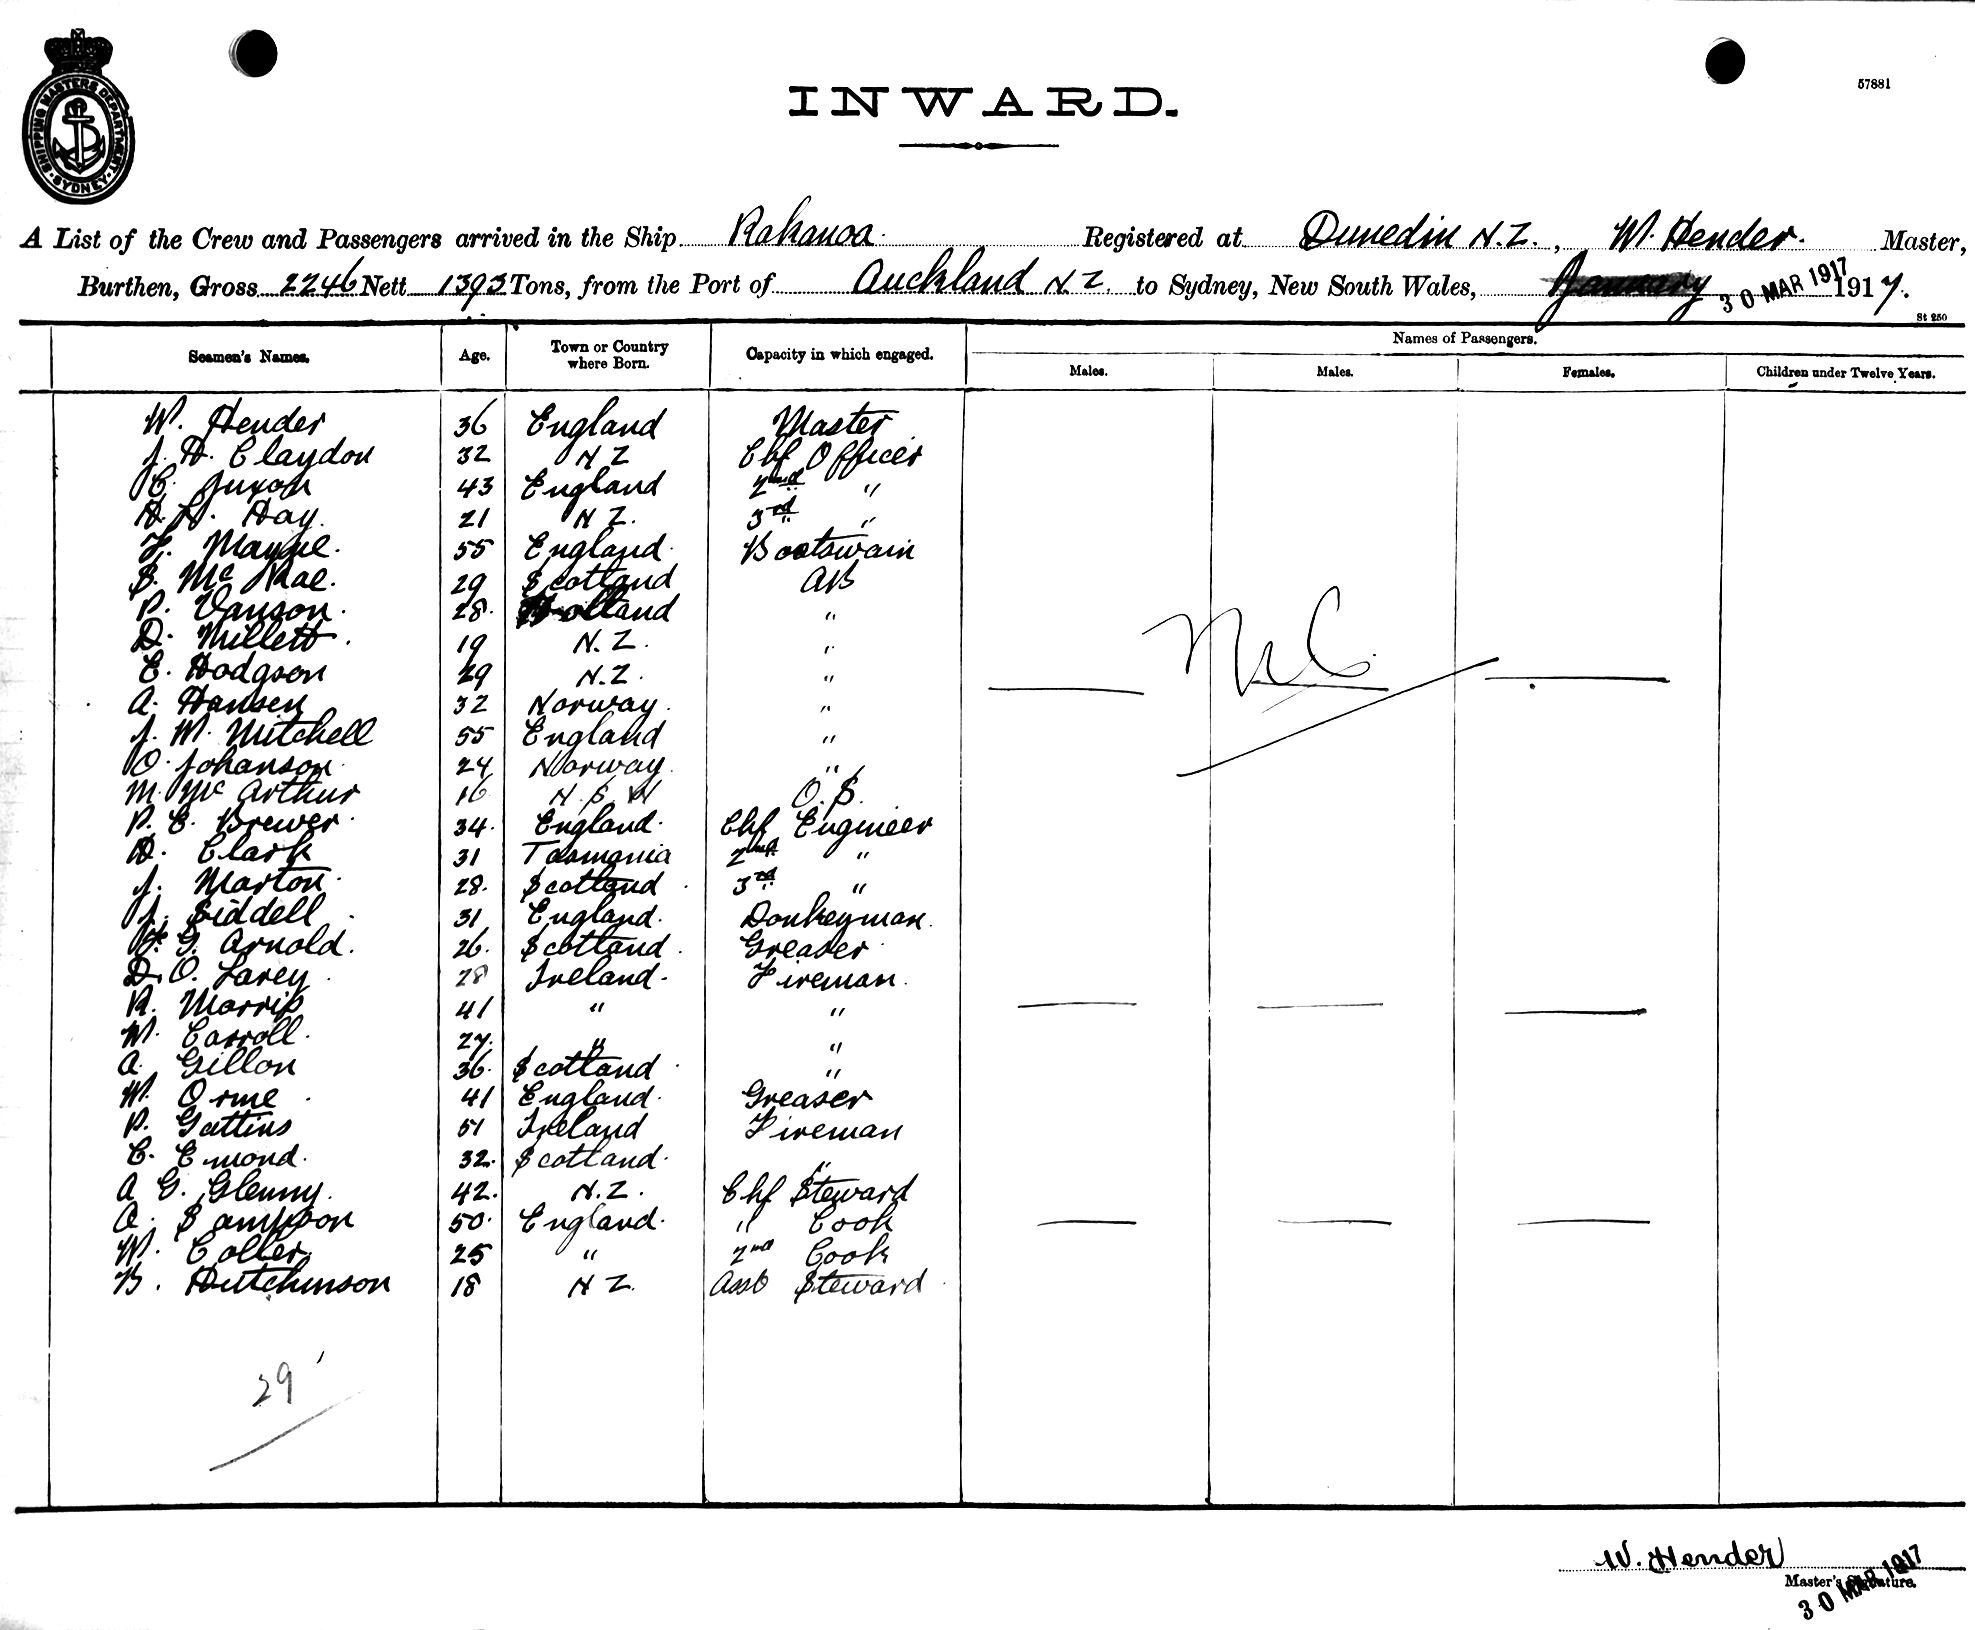 SHIPPING MASTERS DEPARTMENT. SYDNEY
57881
INWARD.
A List of the Crew and Passengers arrived in the Ship Kakanoa. Registered at Dunedin N.Z., W. Hender. Master,
Burthen, Gross 2246 Nett 1393 Tons, from the Port of Auckland N Z. to Sydney, New South Wales, January 30 MAR 1917 1917.
St 250
Seamen's Names. Age. Town or Country where Born. Capacity in which engaged. Names of Passengers.
Males. Males. Females. Children under Twelve Years.
W. Hender 36 England Master
J. H. Claydon 32 N Z Chf Officer
C. Juxon 43 England 2nd "
H. H. Hay. 21 N Z. 3rd "
F. Mayne. 55 England. Boatswain
S. Mc Rae. 29 Scotland AB
P. Vanson. 28. Holland "
D. Millett. 19 N.Z. "
E. Hodgson 29 N.Z. "
A. Hansen 32 Norway. "
J. W. Mitchell 55 England "
O. Johanson. 24 Norway. "
M. Mc Arthur 16 N. S. W O.S.
P. E. Brewer. 34. England. Chf Engineer
H. Clark 31 Tasmania 2nd "
J. Marton. 28. Scotland. 3rd "
J. Siddell. 31 England. Donkeyman.
G. Arnold. 26. Scotland. Greaser
D. O. Larey. 28 Ireland. Fireman.
R. Morris 41 " "
W. Carroll. 27. " "
A. Gillon 36. Scotland. "
W. Orme. 41 England. Greaser
P. Gattins 51 Ireland Fireman
C. Emond. 32. Scotland. "
A G. Glenny. 42. N.Z. Chf Steward
A. Sampson 50. England. " Cook
W. Coller. 25 " 2nd Cook
B. Hutchinson 18 N Z. Asst Steward
Nil
29
W. Hender
Master's Signature.
30 MAR 1917